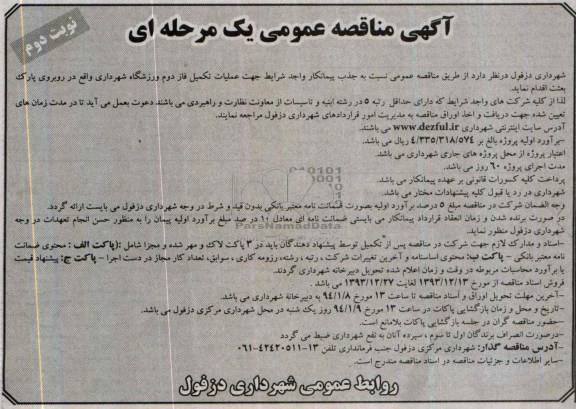 نوبت دوم
آگهی مناقصه عمومی یک مرحله ای
شهرداری دزفول درنظر دارد از طریق مناقصه عمومی نسبت به جذب پیمانکار واجد شرایط جهت عملیات تکمیل فاز دوم ورزشگاه شهرداری واقع در روبروی پارک
بعثت اقدام نماید.
لذا از کلیه شرکت های واجد شرایط که دارای حداقل رتبه ۵ در رشته ابنیه و تاسیسات از معاونت نظارت و راهبردی می باشند دعوت بعمل می آید تا در مدت زمان های
تعیین شده جهت دریافت و اخذ اوراق مناقصه به مدیریت امور قراردادهای شهرداری دزفول مراجعه نمایند.
آدرس سایت اینترنتی شهرداری www.dezful.ir می باشند.
-برآورد اولیه پروژه بالغ بر ۴/۳۳۵/۳۱۸/۵۷۴ ریال می باشد.
اعتبار پروژه از محل پروژه های جاری شهرداری می باشد.
مدت اجرای پروژه ۶۰ روز می باشد.
پرداخت کلیه کسورات قانونی بر عهده پیمانکار می باشد.
شهرداری در رد یا قبول کلیه پیشنهادات مختار می باشد.
وجه الضمان شرکت در مناقصه مبلغ ۵ درصد برآورد اولیه بصورت ضمانت نامه معتبر بانکی بدون قید و شرط در وجه شهرداری دزفول می بایست ارائه گردد.
در صورت برنده شدن و زمان انعقاد قرارداد پیمانکار می بایستی ضمانت نامه ای معادل ۱۰ در صد مبلغ برآورد اولیه پیمان را به منظور حسن انجام تعهدات در وجه
شهرداری دزفول منظور نماید.
-اسناد و مدارک لازم جهت شرکت در مناقصه پس از تکمیل توسط پیشنهاد دهندگان باید در ۳ پاکت لاک و مهر شده و مجزا شامل :(پاکت الف : محتوی ضمانت
نامه معتبر بانکی - پاکت ب: محتوی اساسنامه و آخرین تغییرات شرکت ، رتبه ، رشته، رزومه کاری ، سوابق، تعداد کار مجاز در دست اجرا - پاکت ج: پیشنهاد قیمت
یا برآورد محاسبات مربوطه در وقت و زمان اعلام شده تحویل دبیرخانه شهرداری گردند.
فروش اسناد مناقصه از مورخ ۱۳۹۳/۱۲/۱۳ لغایت ۱۳۹۳/۱۲/۲۷ می باشد .
-آخرین مهلت تحویل اوراق و اسناد مناقصه تا ساعت ۱۳ مورخ ۹۴/۱/۸ به دبیرخانه شهرداری می باشد.
- تاریخ و محل و زمان بازگشایی پاکات در ساعت ۱۳ مورخ ۹۴/۱/۹ روز یک شنبه در محل شهرداری مرکزی دزفول می باشد.
-حضور مناقصه گران در جلسه بازگشایی پاکات بلامانع است.
-درصورت انصراف برندگان اول تا سوم ، سپرده آنان به نفع شهرداری ضبط می گردد
-آدرس مناقصه گذار: شهرداری مرکزی دزفول جنب فرمانداری تلفن ۱۳-۴۲۴۲۰۵۱۱-۰۶۱
-سایر اطلاعات و جزئیات مناقصه در اسناد مناقصه مندرج است.
روابط عمومی شهرداری دزفول
ParsNamadData